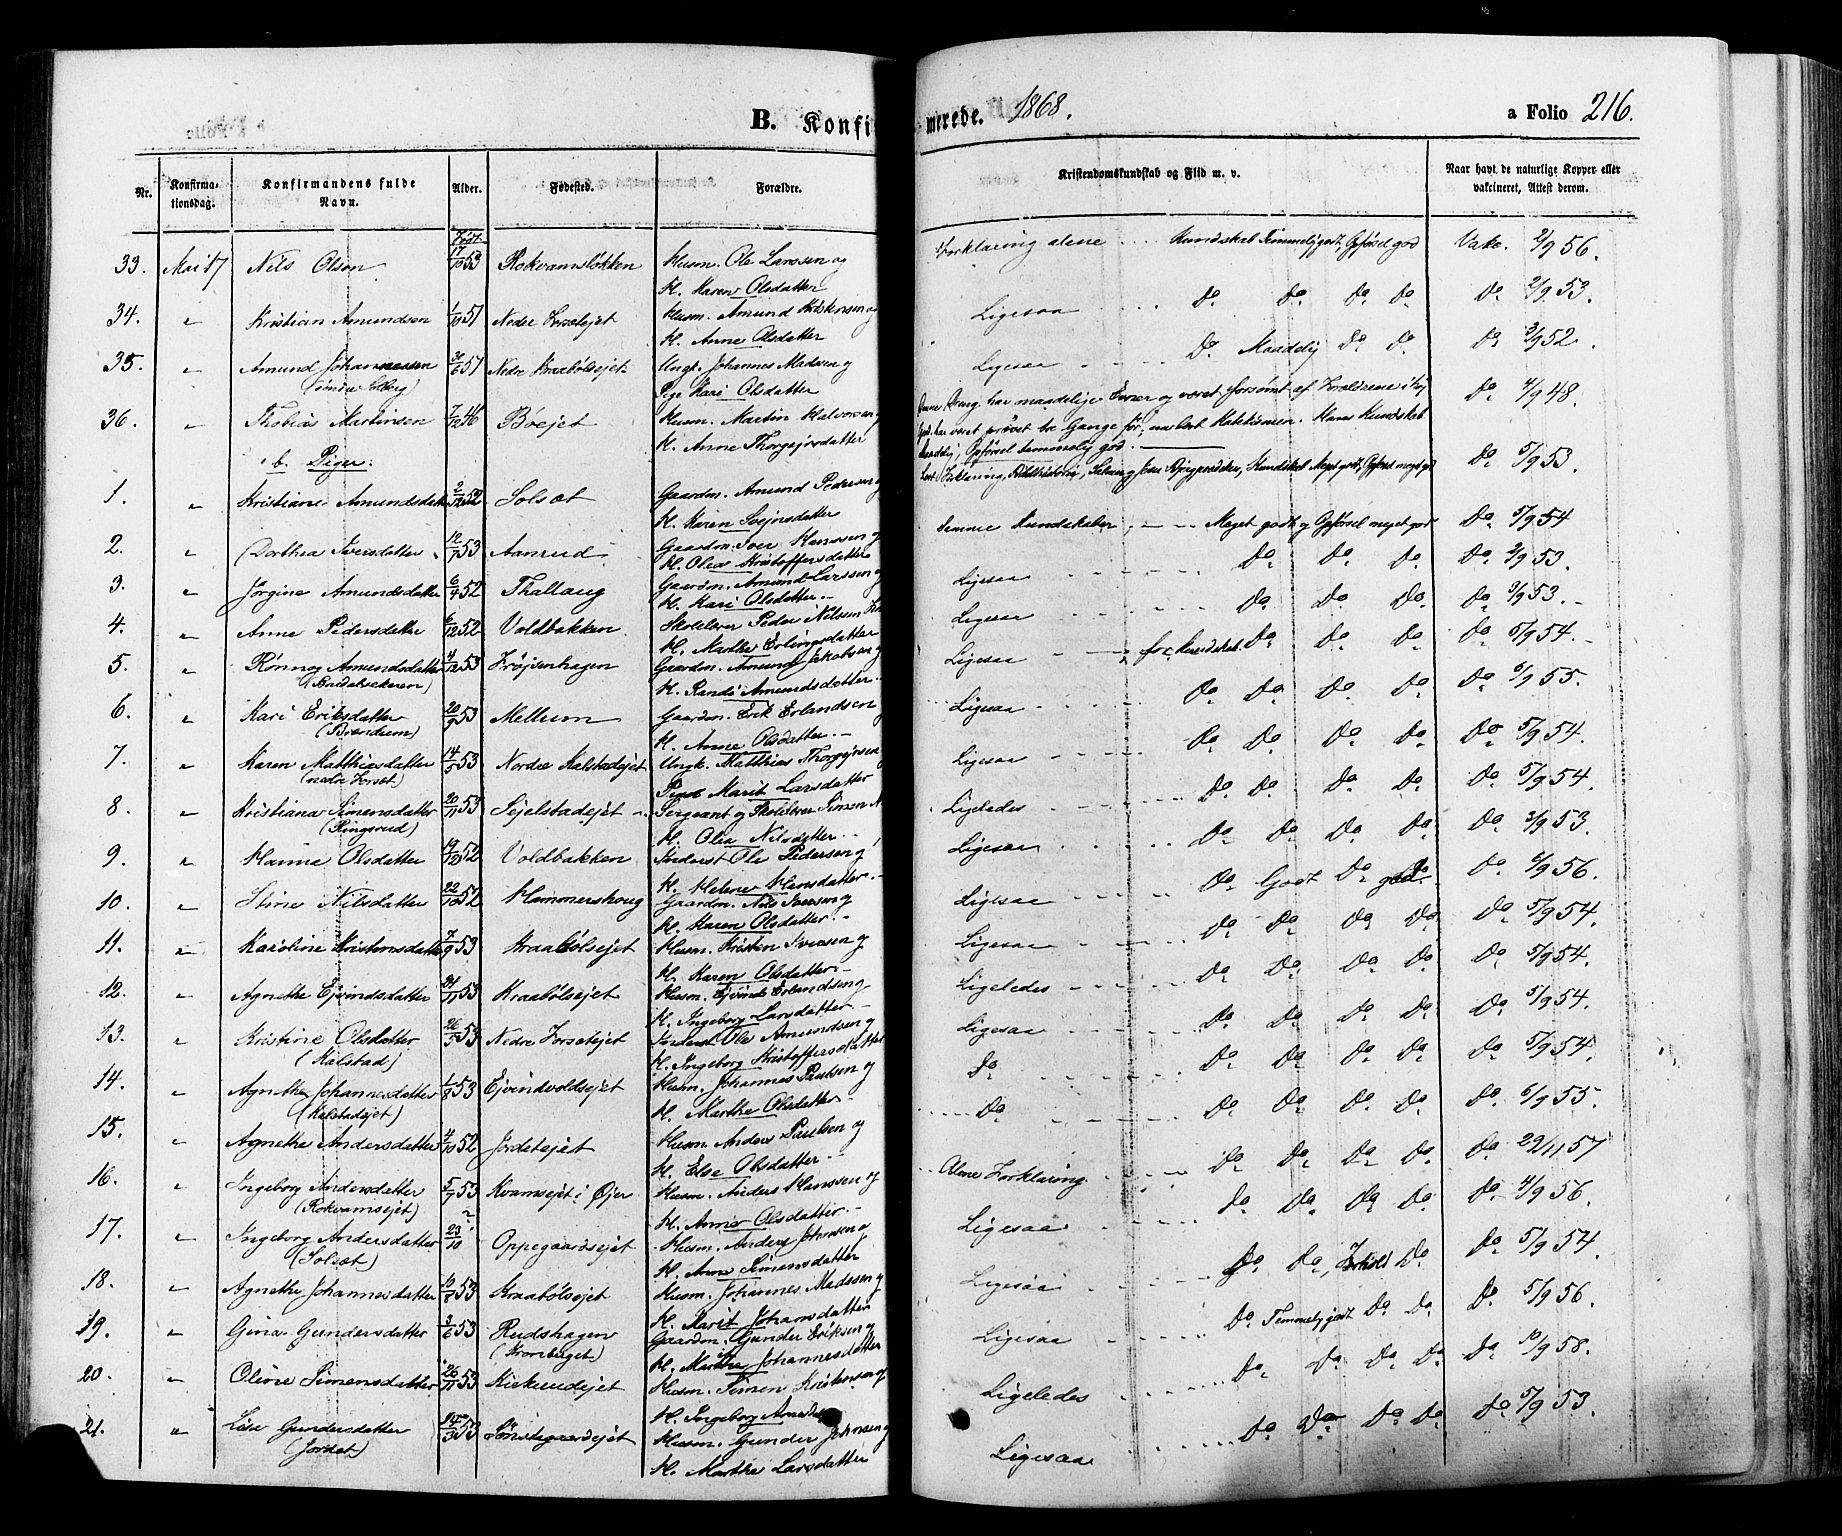 B. Konfirmerede. 1868.
a Folio 216.
Nr. Konfirmationsdag. Konfirmandens fulde Navn. Alder. Fødested. Forældre. Kristendomskundskab og Flid m. v. Naar havt de naturlige Kopper eller vakcineret, Attest derom.
Født
33. Mai 17 Nils Olsen 17/10 53 Rokvamsløkken Husm. Ole Larssen og Forklaring alene Kundskab Temmelig godt, Opførsel god Vakc. 2/9 56.
K. Karen Olsdatter
34. " Kristian Amundsen 1/10 51 Nedre Forsetejet Husm. Amund Kristensen og Ligesaa Do Do Do Do Do 2/9 53.
K. Anne Olsdatter
35. " Amund Johannessen 30/6 51 Nedre Kraabølsejet Ungk. Johannes Madssen og Ligesaa Do Maadelig Do Do Do 3/9 52.
(søndre Solberg) Pige Kari Olsdatter
36. " Thobias Martinsen 7/12 46 Bøejet Husm. Martin Halvorsen og Denne Dreng har maadelige Evner og været forsømt af Forældrene Do 4/9 48.
K. Anne Thorgejrsdatter har været prøvet tre Gange før, har lært Katekismen. Hans Kundskab
Maadelig, Opførsel temmelig god.
b. Piger:
1. " Kristiane Amundsdatter 2/12 52 Solsæt Gaardm. Amund Pedersen og Læst Forklaring, Bibelhistorie, Kundskab Meget godt, Opførsel meget god Do 5/9 53.
K. Karen Svejnsdatter
2. " Dorthea Iversdatter 12/1 53 Aanrud Gaardm. Iver Hanssen og Samme Kundskaber, Meget godt og Opførsel meget god Do 5/9 54
K. Olea Kristoffersdatter
3. " Jørgine Amundsdatter 6/4 52 Thallaug Gaardm. Amund Larssen og Ligesaa Do Do Do Do 2/9 53.
K. Kari Olsdatter
4. " Anne Pedersdatter 6/12 52 Voldbakken Skolelærer Peder Nilssen Ligesaa Do Do Do Do 3/9 53.
K. Marthe Erlingsdatter
5. " Rønnog Amundsdatter 4/12 53 Frøjsenhagen Gaardm. Amund Jakobsen og Ligesaa for Kundskab Do Do Do Do 5/9 54.
K. Randi Amundsdatter
6. " Kari Eriksdatter 20/9 53 Mellum Gaardm. Erik Erlandsen og Ligesaa Do Do Do Do Do 6/9 55.
K. Anne Olsdatter
7. " Karen Matthiasdatter 14/5 53 Nordre Kalstadejet Ungk. Matthias Thorgejrsen Ligesaa Do Do Do Do Do 5/9 54.
(nedre Forset) Pige Marit Larsdatter
8. " Kristiana Simensdatter 20/11 53 Sejelstadejet Sergeant og Skolelærer Simen Ligeledes Do Do Do Do Do 5/9 54.
(Ringsrud) K. Olea Nilsdatter
9. " Hanna Olsdatter 19/12 52 Voldbakken Inderst Ole Pedersen og Ligesaa Do Do Do Do Do 3/9 53.
K. Helene Hansdatter
10. " Stine Nilsdatter 22/10 52 Hammershoug Gaardm. Nils Iversen og Ligesaa Do Godt Do Do 6/9 56.
K. Karen Olsdatter
11. " Karoline Kristensdatter 7/9 53 Kraabølsejet Husm. Kristen Iversen og Ligesaa Do Do Do Do Do 5/9 54.
K. Karen Olsdatter
12. " Agnethe Ejvindsdatter 24/11 53 Kraabølsejet Husm. Ejvind Erlandsen og Ligeledes Do Do Do Do Do 5/9 54.
K. Ingeborg Larsdatter
13. " Kristine Olsdatter 26/5 53 Nedre Forsetejet Inderst Ole Amundsen og Ligesaa Do Do Do Do Do 5/9 54.
(Kalstad) K. Ingeborg Kristoffersdatter
14. " Agnethe Johannesdatter 1/8 53 Ejvindvoldsejet Husm. Johannes Paulsen og Do Do Do Do Do Do 5/9 54.
(Kalstadejet) K. Marthe Olsdatter
15. " Agnethe Andersdatter 4/10 52 Jordetejet Husm. Anders Paulsen og Do Do Do Do Do Do 6/9 55.
K. Else Olsdatter
16. " Ingeborg Andersdatter 5/1 53 Kvamsejet i Øjer Husm. Anders Hanssen og Alene Forklaring Do Do Do Do Do 29/11 57
(Rokvamsejet) K. Anne Olsdatter
17. " Ingeborg Andersdatter 23/10 Oppegaardsejet Husm. Anders Johnsen og Ligesaa Do Do Do Do Do 4/9 56.
(Solsæt) K. Anne Simensdatter
18. " Agnethe Johannesdatter 53 Kraabølsejet Husm. Johannes Madssen og Ligesaa Do Do, Forhold Do Do 5/9 54.
K. Marit Johansdatter
19. " Gina Gundersdatter 3/6 53 Rudshagen Gaardm. Gunder Eriksen og Ligesaa Do Temmelig godt Do Do Do 5/9 56.
K. Marthe Johannesdatter
20. " Oline Simensdatter 26/11 53 Kirkerudejet Husm. Simen Kristensen og Ligeledes Do Do Do Do Do 10/9 58.
K. Ingeborg
21. " Lise Gundersdatter 53 Tonstegaardejet Husm. Gunder Johnsen og Ligesaa Do Do Do Do Do 5/9 53.
(Jordet) K. Marthe Larsdatter